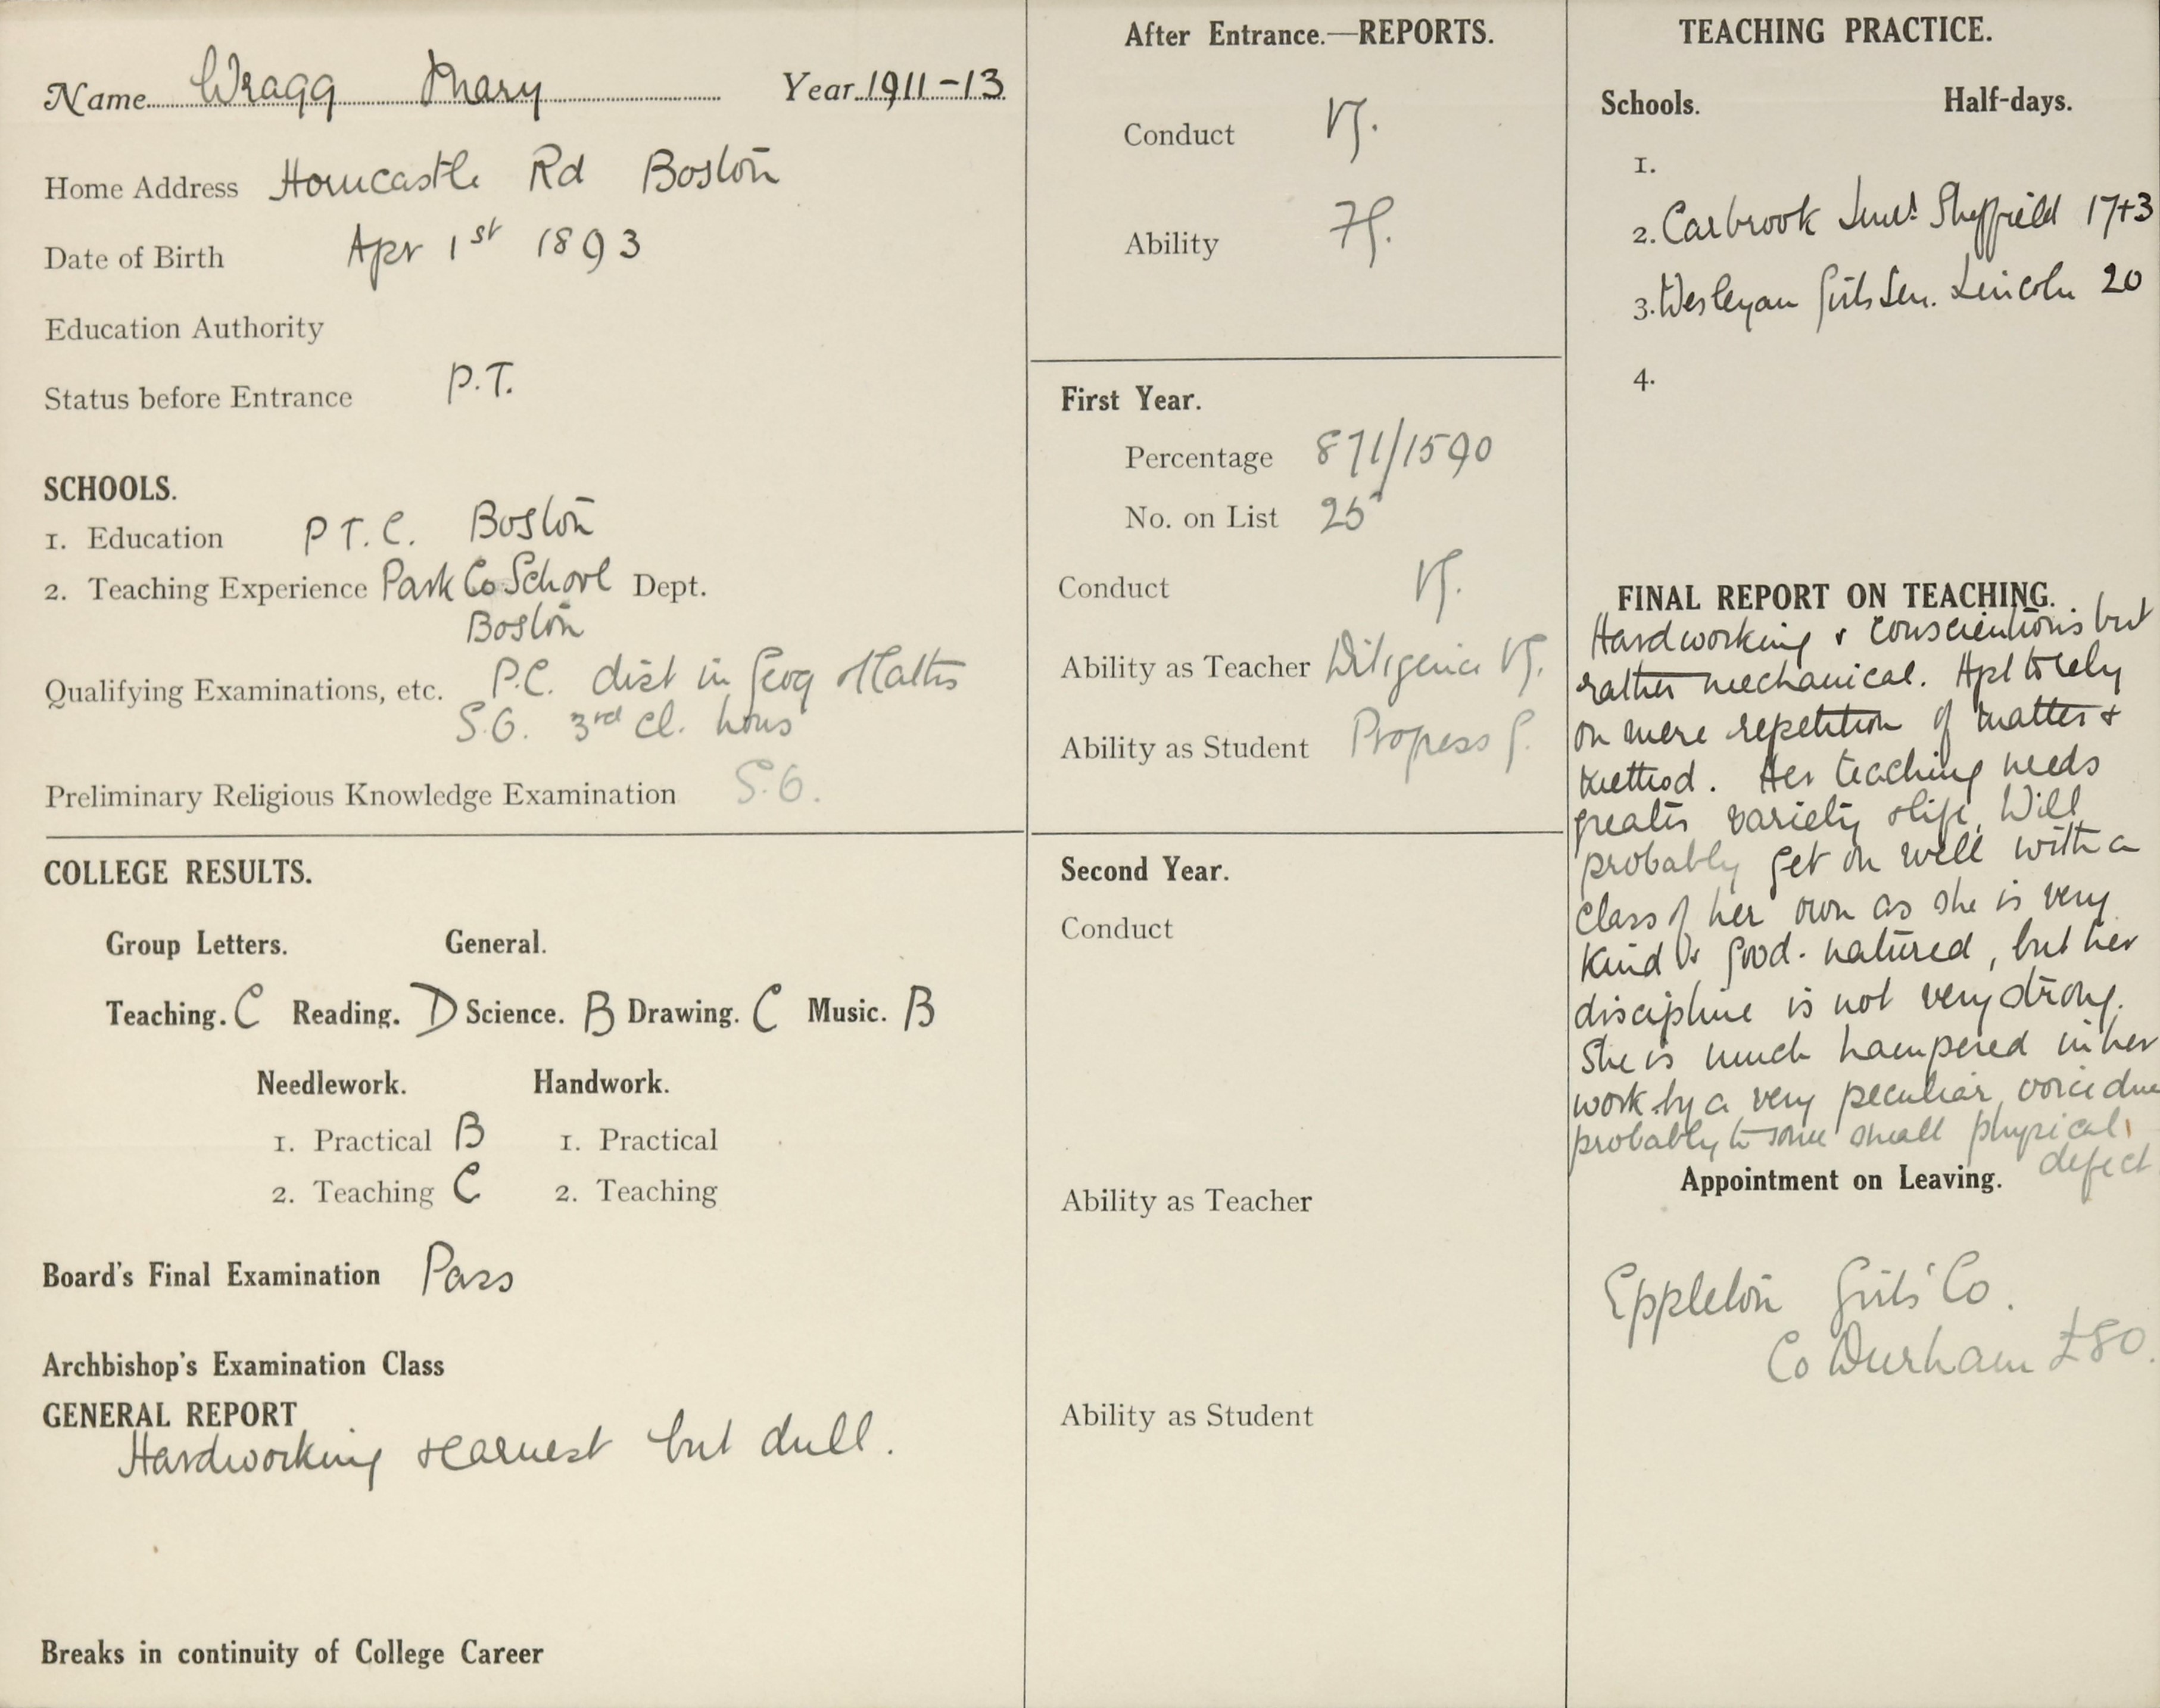 Name Wragg Mary Year 1911-13
Home Address Horncastle Rd Boston
Date of Birth Apr 1st 1893
Education Authority
Status before Entrance P.T.
SCHOOLS.
1. Education P T. C. Boston
2. Teaching Experience Park Co School Dept.
Boston
Qualifying Examinations, etc. P.C. dist in Geog & Maths
S.G. 3rd cl. hons
Preliminary Religious Knowledge Examination S.G.
COLLEGE RESULTS.
Group Letters. General.
Teaching. C Reading. D Science. B Drawing. C Music. B
Needlework. Handwork.
1. Practical B 1. Practical
2. Teaching C 2. Teaching
Board's Final Examination Pass
Archbishop's Examination Class
GENERAL REPORT
Hardworking & earnest but dull.
Breaks in continuity of College Career
After Entrance.—REPORTS.
Conduct VG.
Ability FG.
First Year.
Percentage 871/1590
No. on List 25
Conduct VG.
Ability as Teacher Diligence VG.
Ability as Student Progress G.
Second Year.
Conduct
Ability as Teacher
Ability as Student
TEACHING PRACTICE.
Schools. Half-days.
1.
2. Carbrook Sheffield 17+3
3. Wesleyan Girls Sen. Lincoln 20
4.
FINAL REPORT ON TEACHING.
Hardworking & conscientious but
rather mechanical. Apt to rely
on mere repetition of matter &
method. Her teaching needs
greater variety & life. Will
probably get on well with a
class of her own as she is very
kind & good-natured, but her
discipline is not very strong.
She is much hampered in her
work by a very peculiar voice due
probably to some small physical
defect
Appointment on Leaving.
Eppleton Girls' Co.
Co Durham £80.